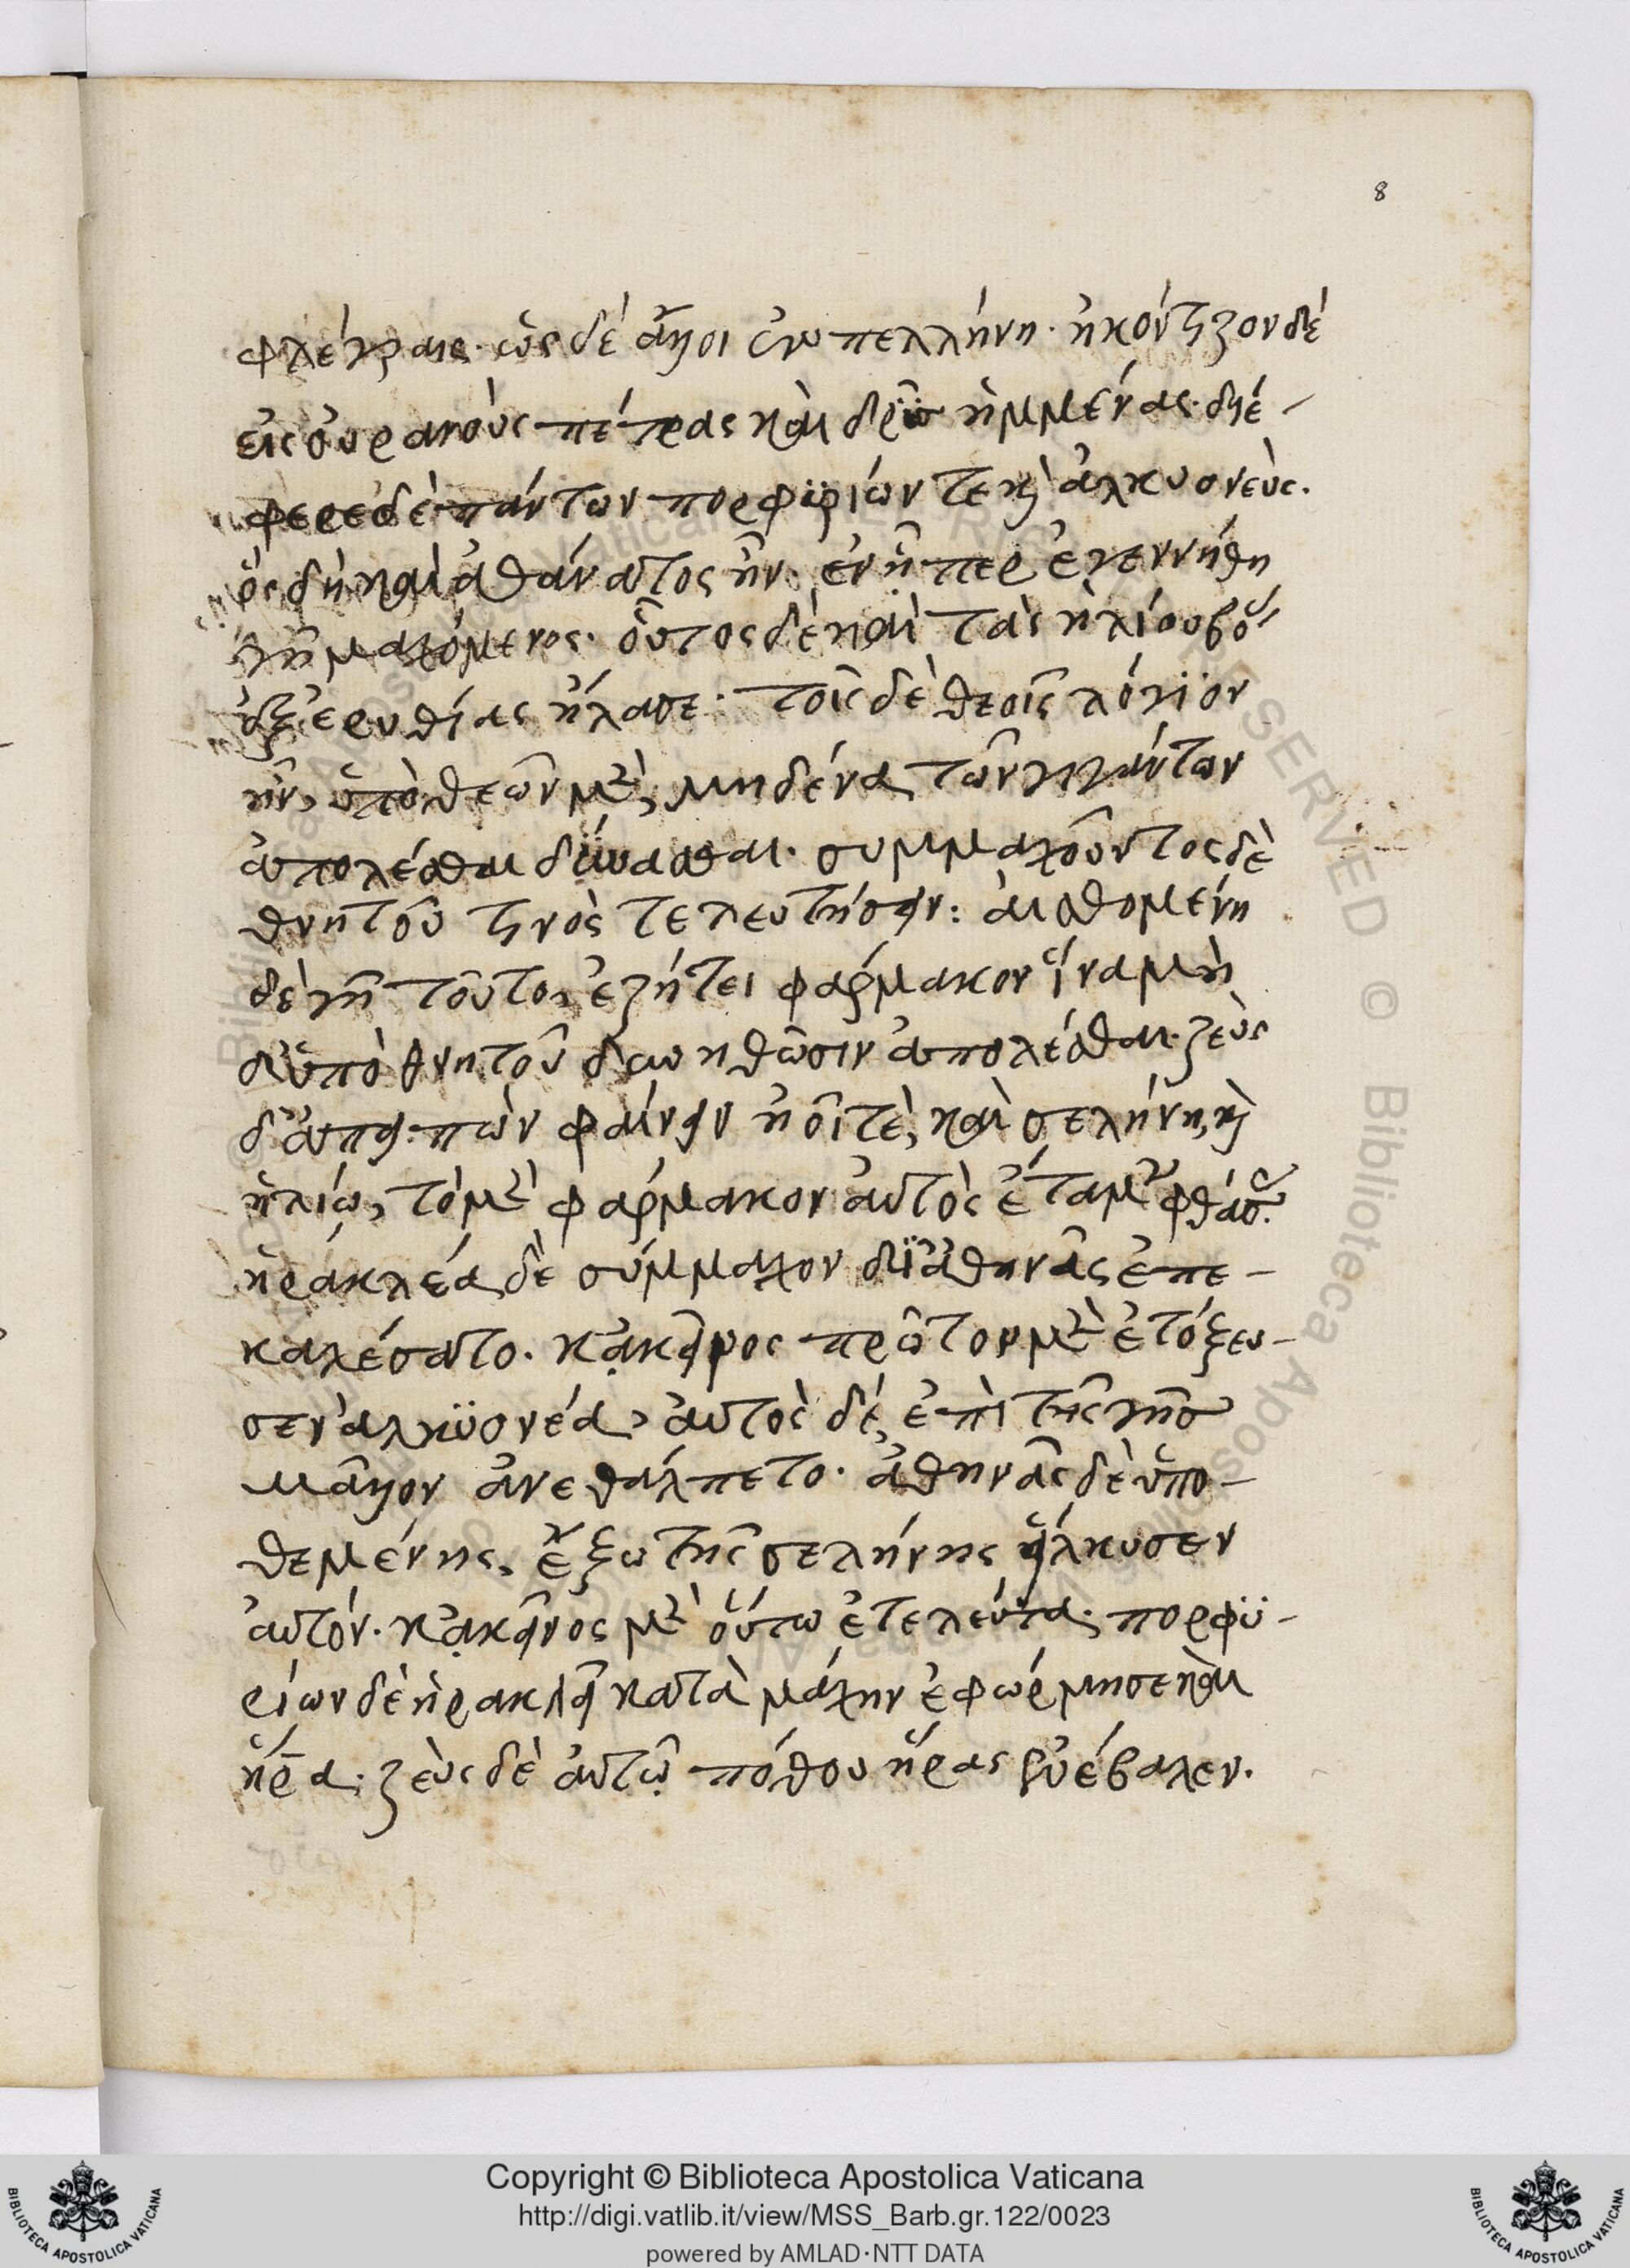 8
φλέγραις. ὡς δέ ἄλλοι ἐν πελλήνη. ἠκόντιζον δὲ
εἰς οὐρανοὺς πέτρας καὶ δρῦς ἡμμένας. διέ-
φερε δὲ πάντων πορφυρίων τε καὶ ἀλκυονεὺς.
ὃς δὴ καὶ ἀθάνατος ἦν. ἐν ᾗπερ ἐγεννήθη
γῆ μαχόμενος. οὗτος δὲ καὶ τὰς ἡλίου βόας
ἐξ ερυθίας ἤλασε. τοῖς δὲ θεοῖς λόγϊον
ἦν, ὑπὸ θεῶν μὲν, μηδένα τῶν γιγάντων
ἀπολέσθαι δύνασθαι. συμμαχοῦντος δὲ
θνητοῦ τινὸς τελευτήσειν: αἰσθομένη
δὲ γῆ τοῦτο, ἐζήτει φάρμακον ἵνα μὴ
δ' ὑπὸ θνητοῦ δυνηθῶσιν ἀπολέσθαι. ζεὺς
δ' ἀπειπὼν φαίνειν ἠοῖ τὲ, καὶ σελήνη, καὶ
ἡλίω, τὸ μὲν φάρμακον αὐτὸς ἔταμε φθάσας.
ἡρακλέα δὲ σύμμαχον δϊ ἀθηνᾶς ἐπε-
καλέσατο. κἀκεῖνος πρῶτον μὲν ἐτόξευ-
σεν ἀλκϋονέα, αὐτὸς δέ, ἐπὶ τῆς γῆς
μᾶλλον ἀνεθάλπετο. ἀθηνᾶς δὲ ὑπο-
θεμένης, ἔξω τῆς σελήνης εἵλκυσεν
αὐτόν. κἀκεῖνος μὲν οὕτω ἐτελεύτα. πορφϋ-
ρίων δὲ ἡρακλεῖ κατὰ μάχην ἐφώρμησε καὶ
ἥρα. ζεὺς δὲ αὐτῷ πόθον ἥρας ἐνέβαλεν.
Copyright © Biblioteca Apostolica Vaticana
http://digi.vatlib.it/view/MSS_Barb.gr.122/0023
powered by AMLAD·NTT DATA
BIBLIOTECA APOSTOLICA VATICANA
BIBLIOTECA APOSTOLICA VATICANA